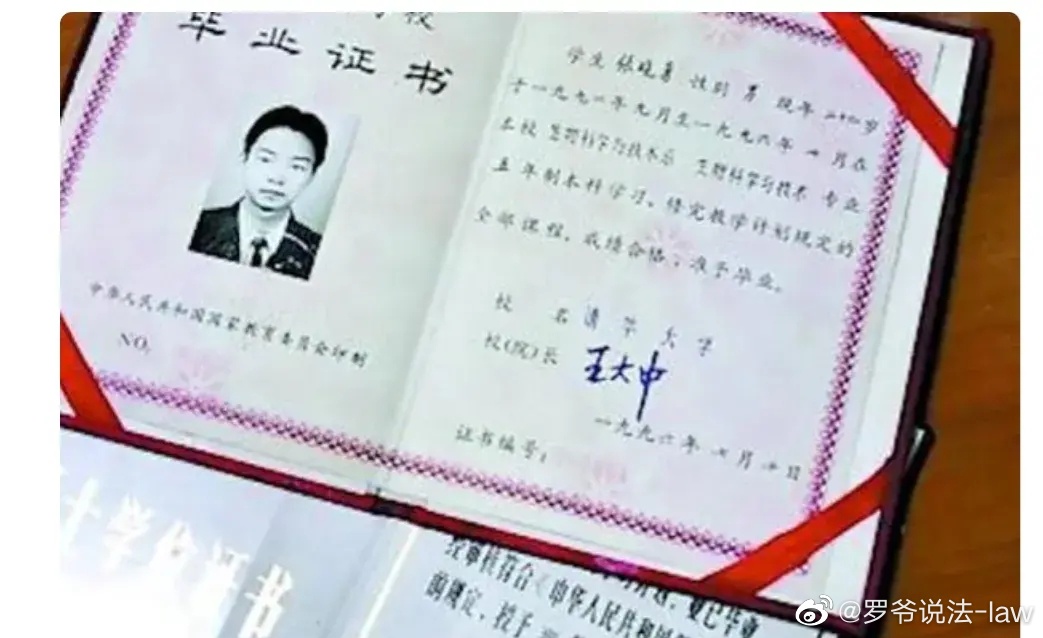 校
毕业证书
中华人民共和国国家教育委员会印制
NO.
学生 张晓勇 性别 男 现年 二十 岁
于一九九一年九月至一九九六年 七 月在
本校 生物科学与技术系 生物科学与技术 专业
五 年制本科学习,修完教学计划规定的
全部课程,成绩合格,准予毕业。
校 名 清华大学
校(院)长 王大中
一九九六年 七 月 日
证书编号:
士学位证书
业已毕业
审核符合《中华人民共和国
的规定,授予
@罗爷说法-law